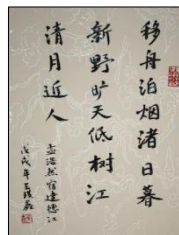 移舟泊烟渚日暮
新野旷天低树江
清月近人
孟浩然宿建德江
戊戌年王